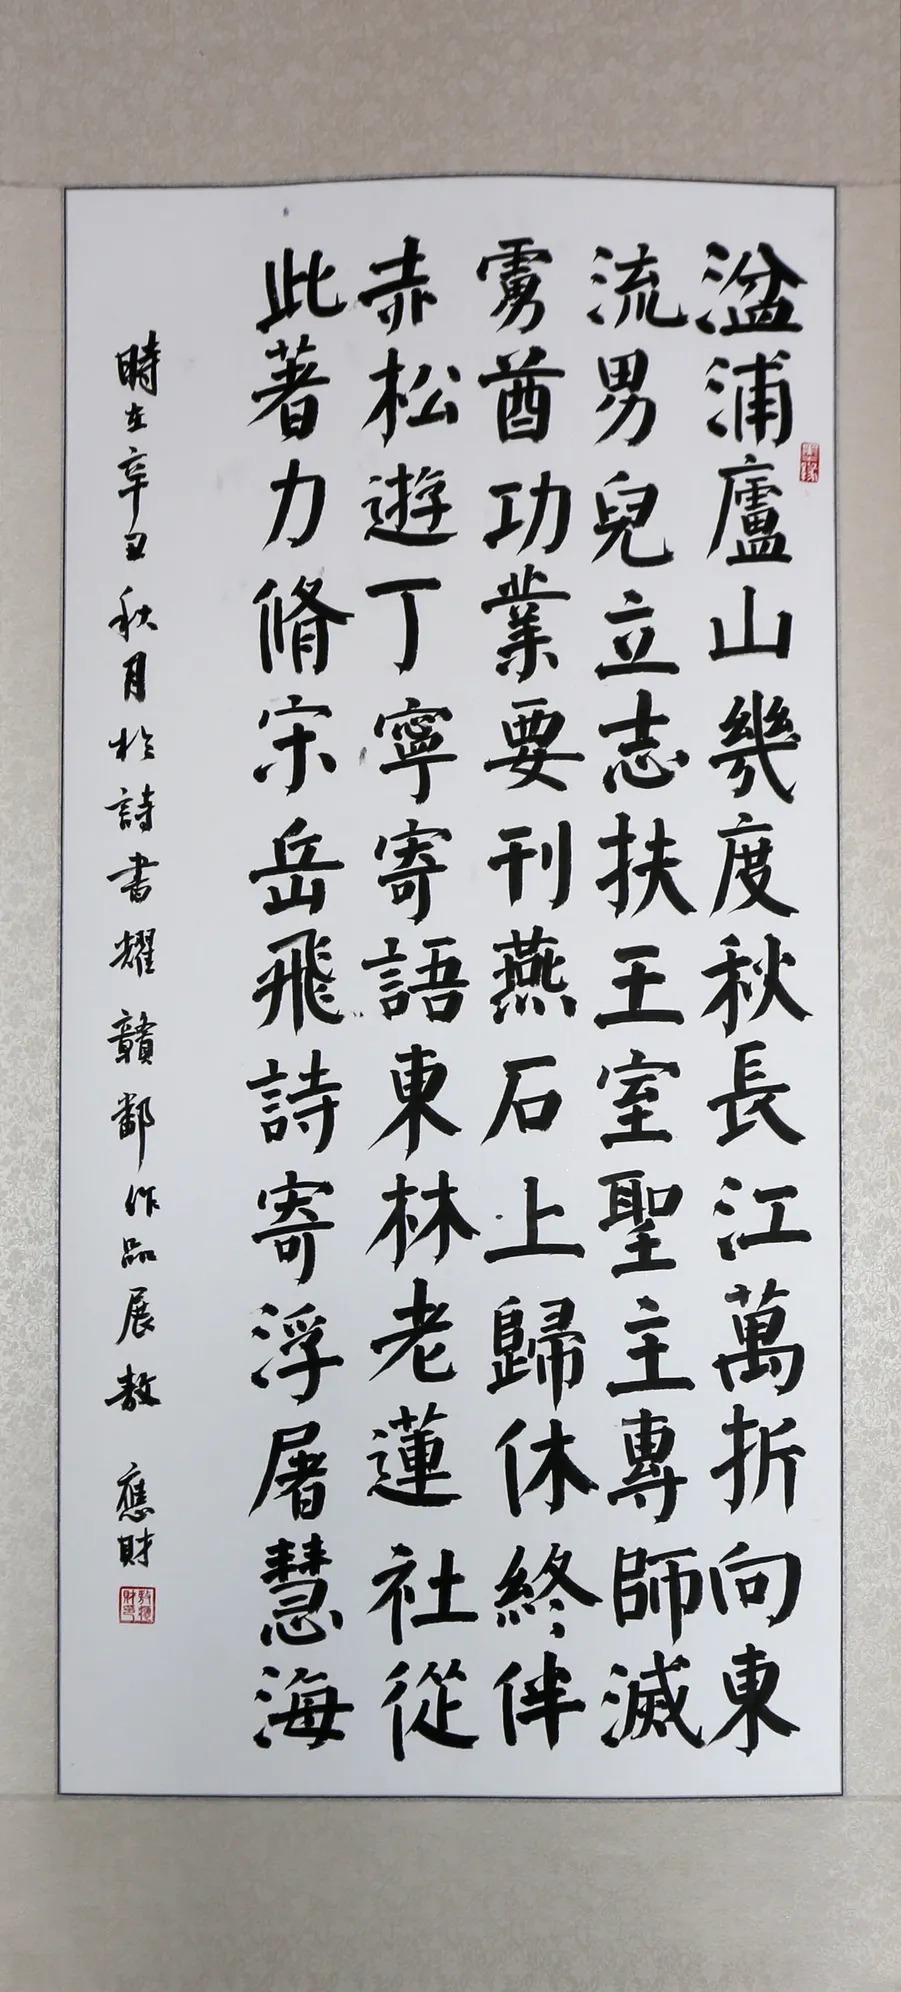 湓浦廬山幾度秋長江萬折向東
流男兒立志扶王室聖主專師滅
虜酋功業要刊燕石上歸休終伴
赤松遊丁寧寄語東林老蓮社從
此著力脩宋岳飛詩寄浮屠慧海
時在辛丑秋月於詩書耀贛鄱作品展敖 應財